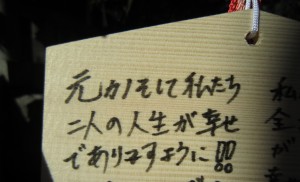 元カノそして私たち
二人の人生が幸せ
でありますように!!
私
全
が
幸